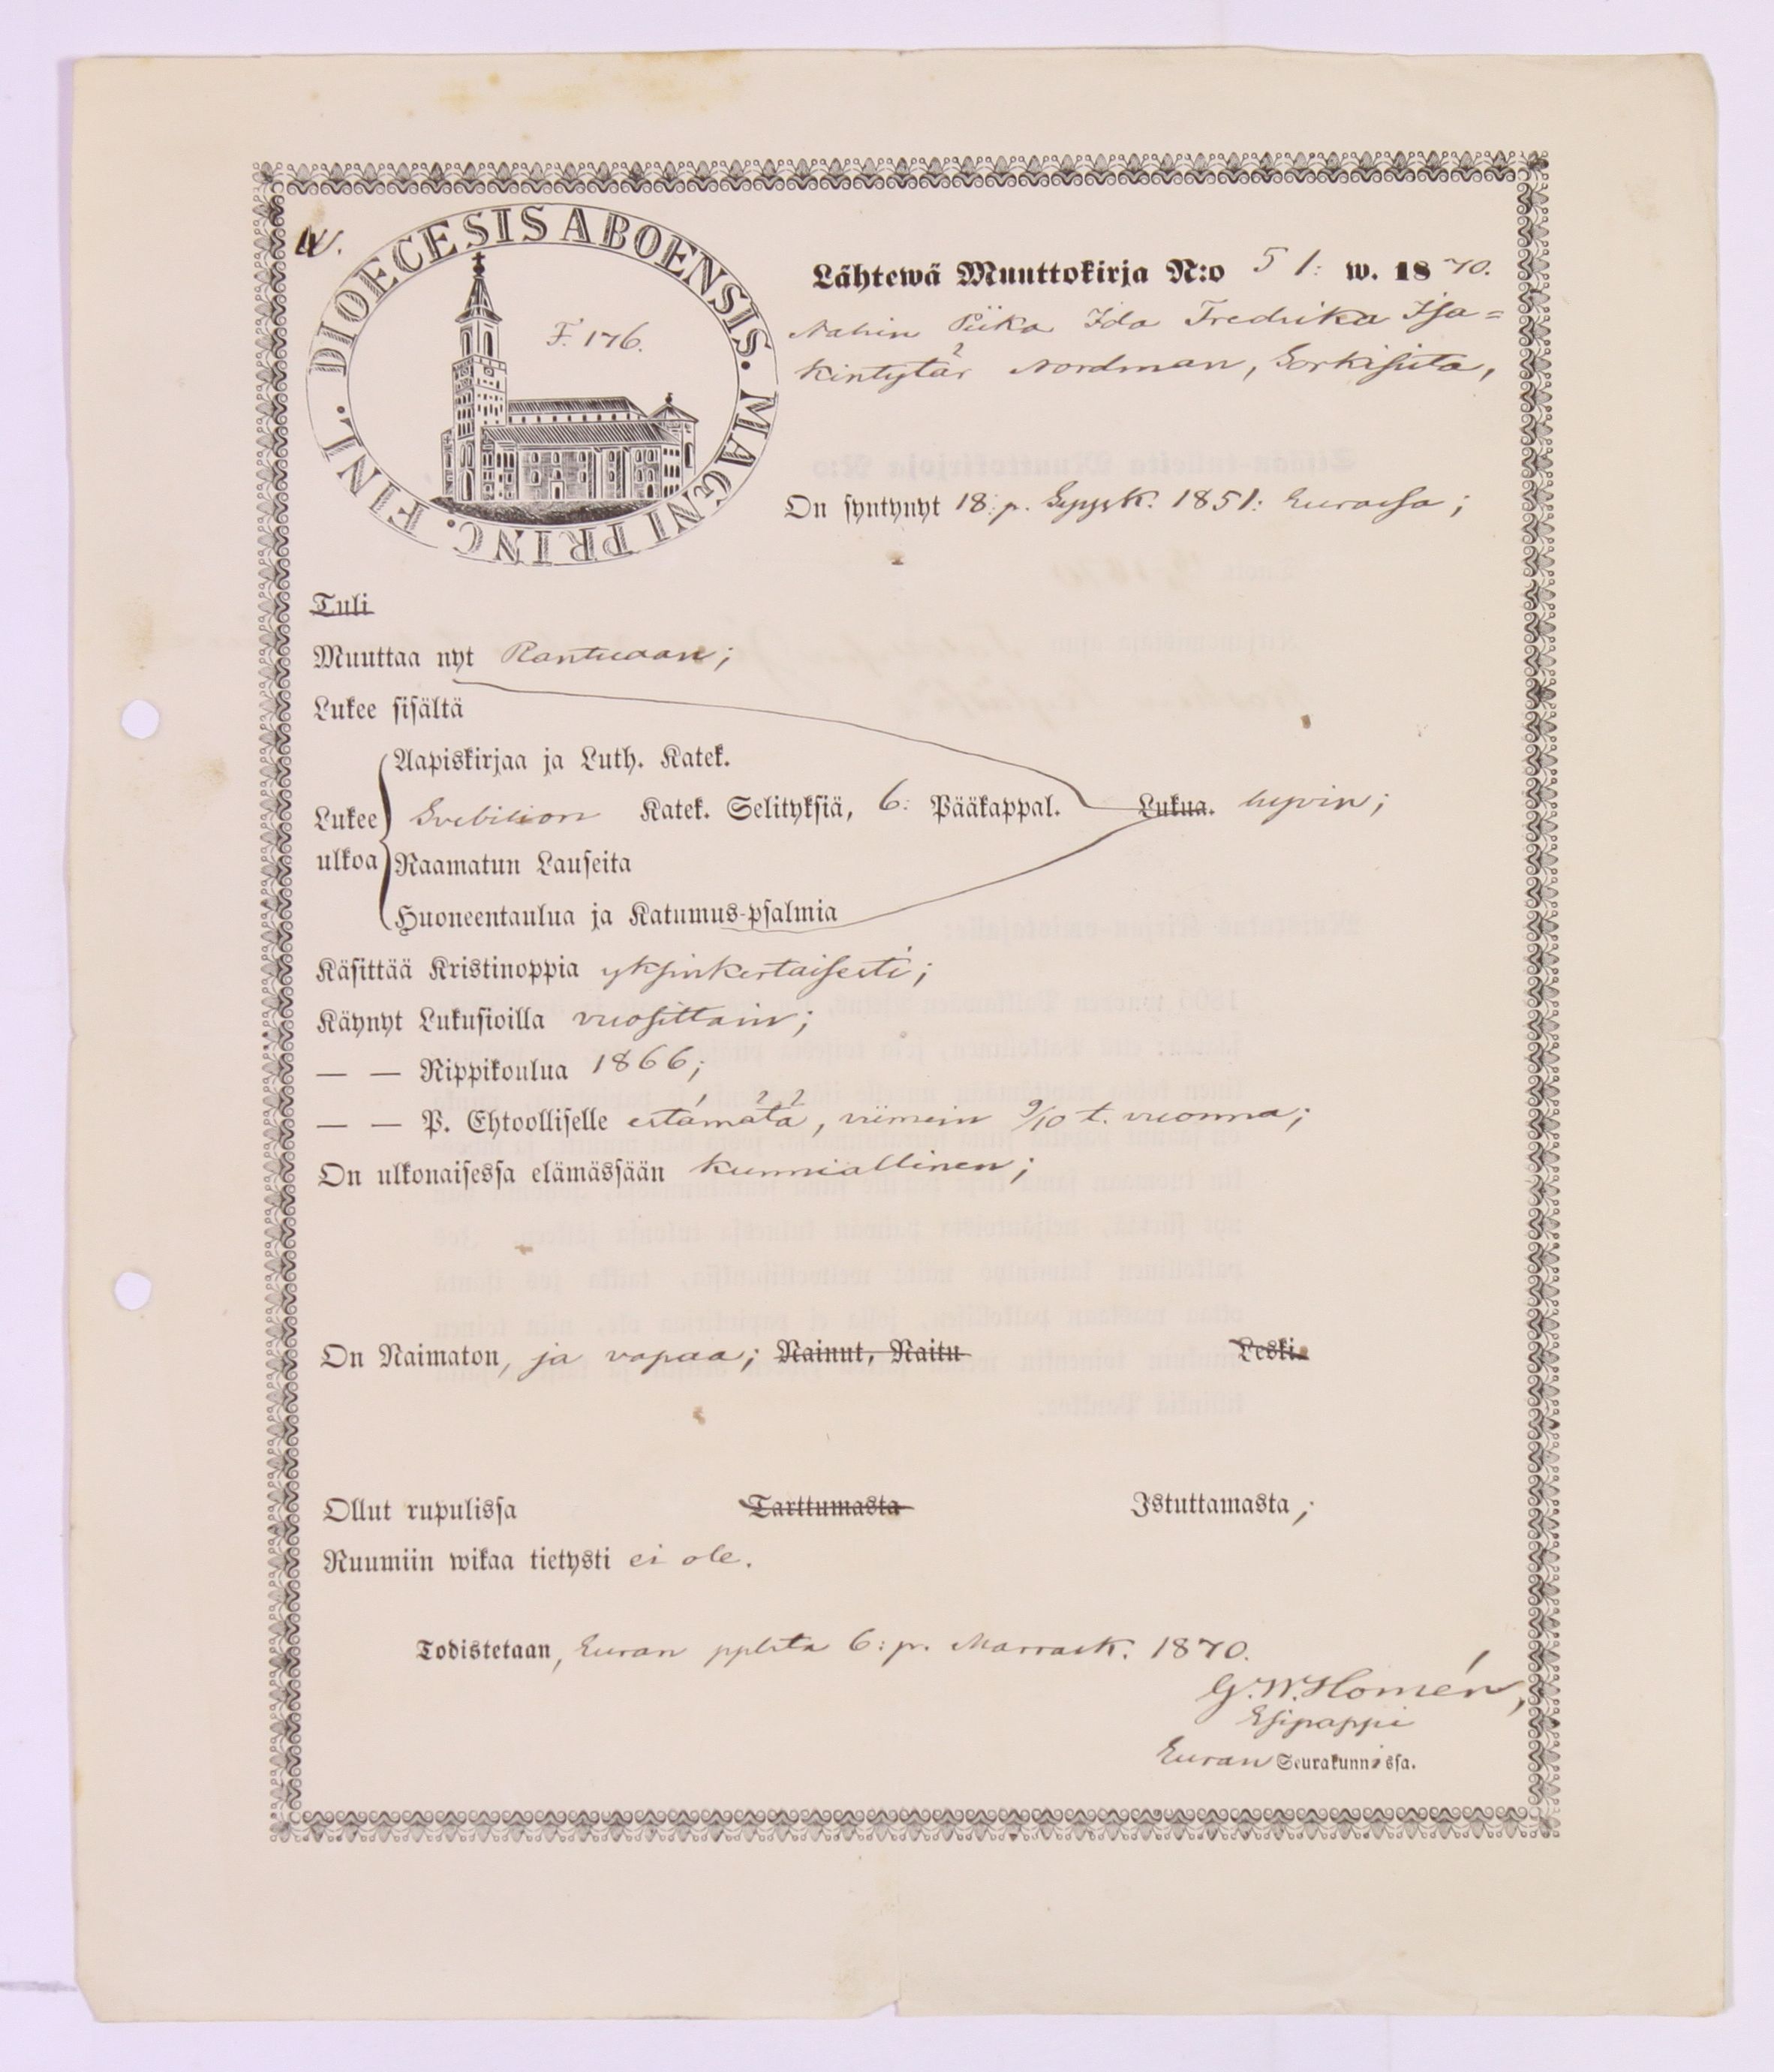 DIOECESIS ABOENSIS. MAGNI PRINC. FINL.
F. 176.
Lähtewä Muuttokirja N:o 51: w. 1870.
Piika Ida Fredrika Isa=
kintytär Nordman, Sorkisista,
On syntynyt 18:p. Syysk. 1851: Eurassa;
Tuli
Muuttaa nyt Rantuaan;
Lukee sisältä
Aapiskirjaa ja Luth. Katek.
Lukee Svebilion Katek. Selityksiä, 6: Pääkappal. Lukua. hyvin;
ulkoa Raamatun Lauseita
Huoneentaulua ja Katumus-psalmia
Käsittää Kristinoppia yksinkertaisesti;
Käynyt Lukusioilla vuosittain;
— — Rippikoulua 1866;
— — P. Ehtoolliselle estämätä, viimein 9/10 t. vuonna;
On ulkonaisessa elämässään kunniallinen;
On Naimaton, ja vapaa; Nainut, Naitu Leski.
Ollut rupulissa Tarttumasta Istuttamasta;
Ruumiin wikaa tietysti ei ole.
Todistetaan, Euran pplsta 6:p. Marrask. 1870.
G. W. Homén,
Esipappi
Euran Seurakunnissa.